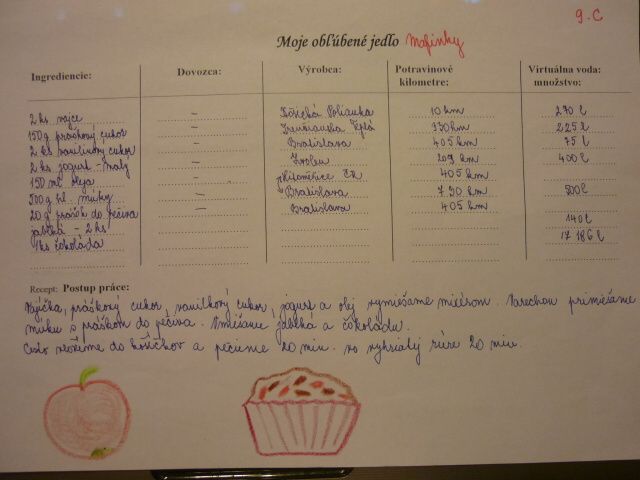 9. C
Moje obľúbené jedlo Mafinky
Ingrediencie: Dovozca: Výrobca: Potravinové kilometre: Virtuálna voda: množstvo:
2 ks vajce – Košická Polianka 10 km 270 l
150g práškový cukor – Trenčianska Teplá 330 km 225 l
2 ks vanilkový cukor – Bratislava 405 km 75 l
2 ks jogurt - malý – Zvolen 209 km 400 l
150 ml oleja – ČR 405 km
300g hl. múky – Bratislava 790 km 500 l
20g prášok do pečiva – Bratislava 405 km
jablká - 2 ks 140 l
1ks čokoláda 17 186 l
Recept: Postup práce:
Vajíčka, práškový cukor, vanilkový cukor, jogurt a olej vymiešame mixérom. Varechou primiešame
múku s práškom do pečiva. Vmiešame jablká a čokoládu.
Cesto vložíme do košíčkov a pečieme 20 min. vo vyhriatej rúre 20 min.